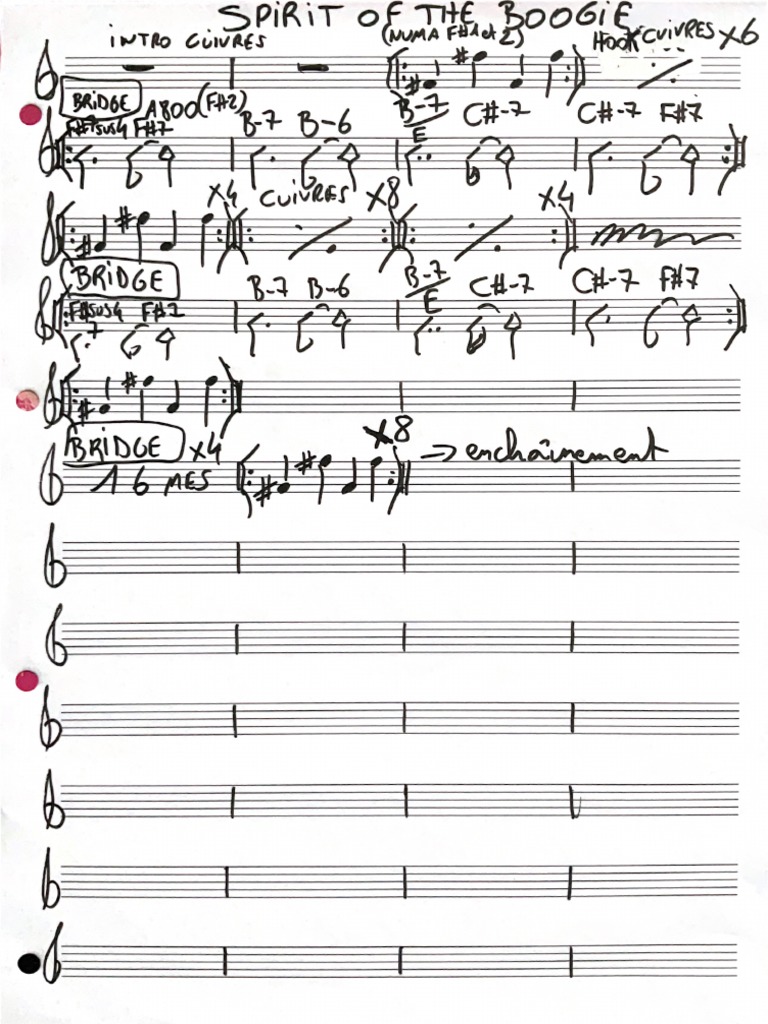 SPIRIT OF THE BOOGIE
INTRO CUIVRES (NUMA F#1 2) HOOK CUIVRES X6
BRIDGE A800 (F#2)
F#7sus4 F#7 B-7 B-6 B-7/E C#-7 C#-7 F#7
X4 CUIVRES X8 X4
BRIDGE
F#sus4 7 F#7 B-7 B-6 B-7/E C#-7 C#-7 F#7
BRIDGE X4 X8 → enchaînement
16 MES